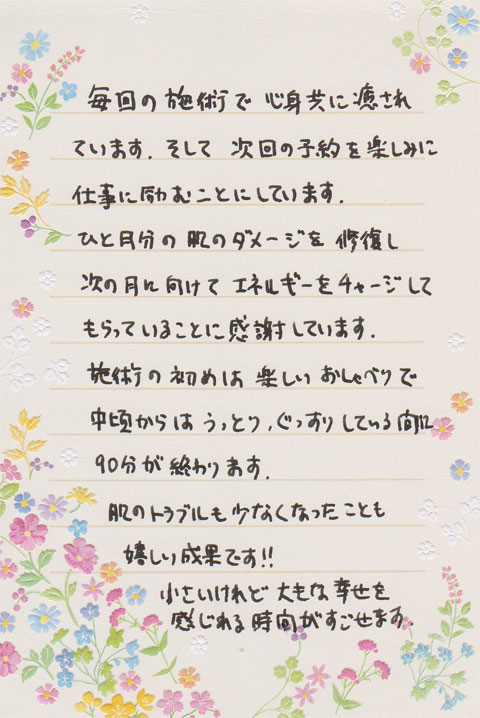 毎回の施術で 心身共に癒され
ています. そして 次回の予約を楽しみに
仕事に励むことにしています.
ひと月分の 肌のダメージを 修復し
次の月に向けて エネルギーをチャージして
もらっていることに感謝しています.
施術の初めは 楽しいおしゃべりで
中頃からは うっとり、ぐっすりしている間に
90分が終わります.
肌のトラブルも少なくなったことも
嬉しい成果です!!
小さいけれど 大きな幸せを
感じれる時間がすごせます.